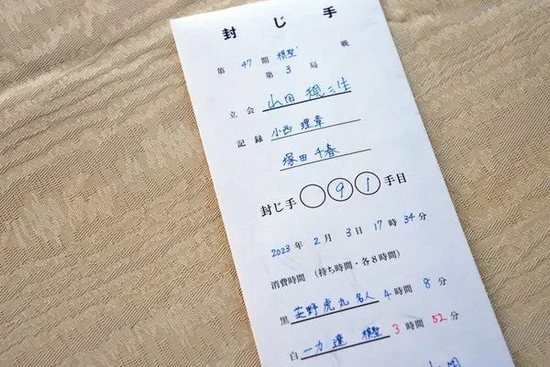 封じ手
第 47 期 棋聖 戦
第 3 局
立会 山田 規三生
記録 小西 理章
塚田 千春
封じ手 ○ 9 1 手目
2023 年 2 月 3 日 17 時 34 分
消費時間 (持ち時間・各8時間)
黒 芝野虎丸 名人 4 時間 8 分
白 一力 遼 棋聖 3 時間 52 分